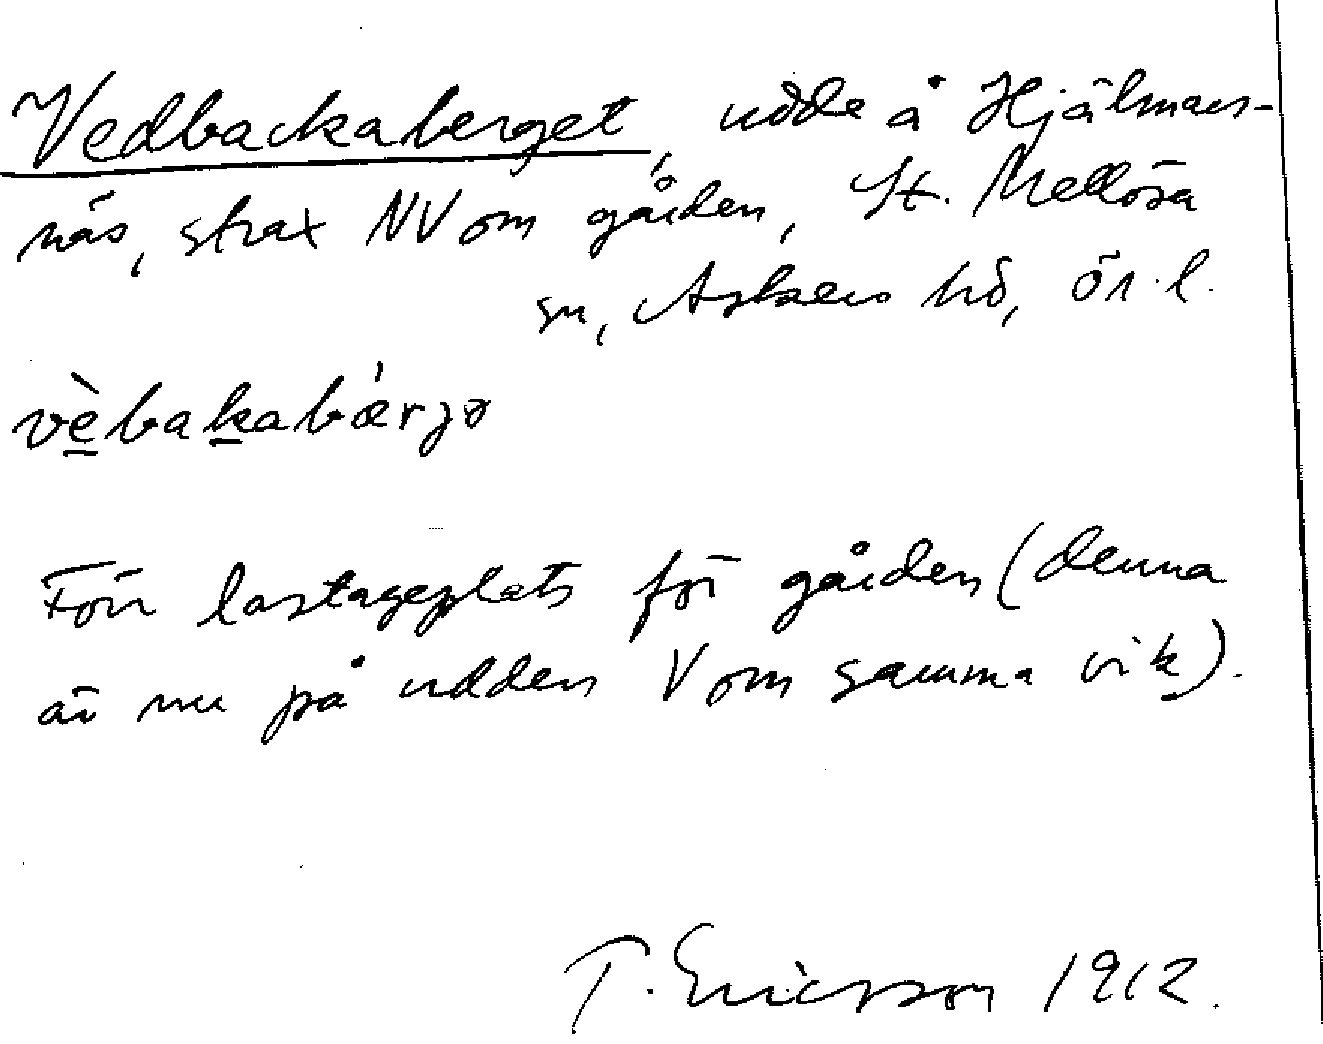 Vedbackaberget, udde å Hjälmars-
näs, strax NV om gården, St. Mellösa
sn, Askers hd, ör. l.
vèbakabǽrjə
Förr lastageplats för gården (denna
är nu på udden V om samma vik).
T. Ericsson 1912.